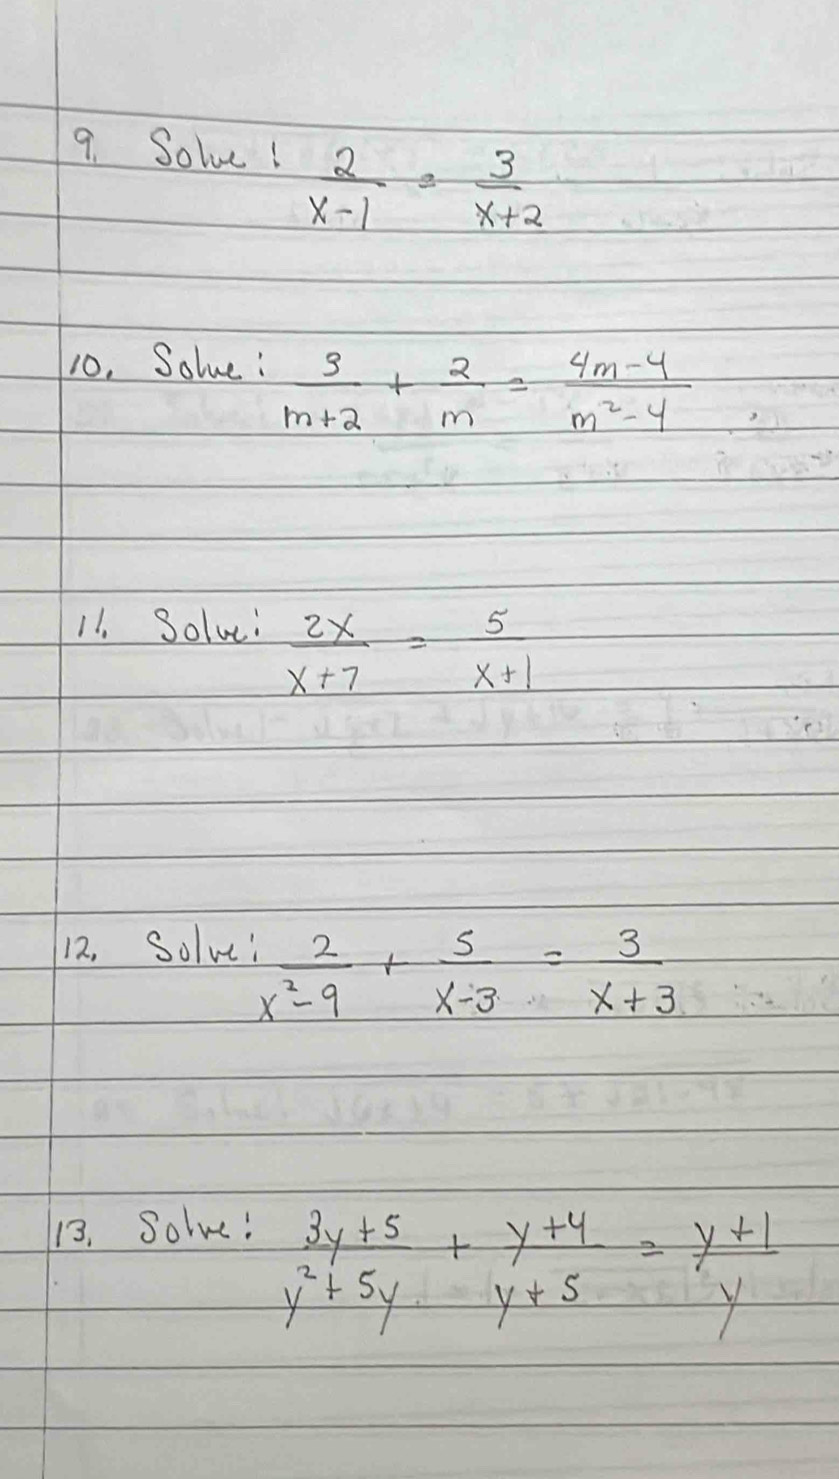 9. Solve: 2/(x-1) = 3/(x+2)
10. Solve: 3/(m+2) + 2/m = (4m-4)/(m²-4)
11. Solve: 2x/(x+7) = 5/(x+1)
12. Solve: 2/(x²-9) + 5/(x-3) = 3/(x+3)
13. Solve: (3y+5)/(y²+5y) + (y+4)/(y+5) = (y+1)/y